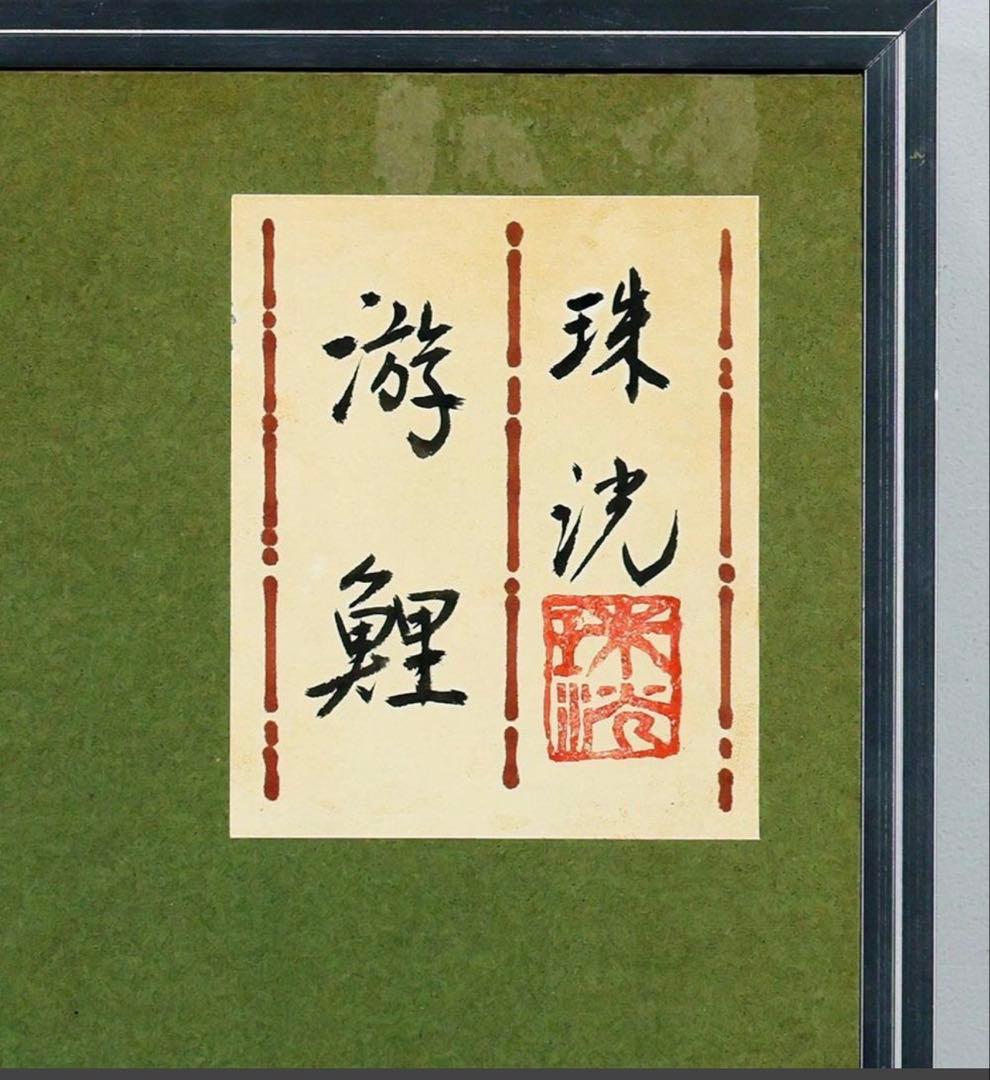 珠洸
珠洸
游鯉